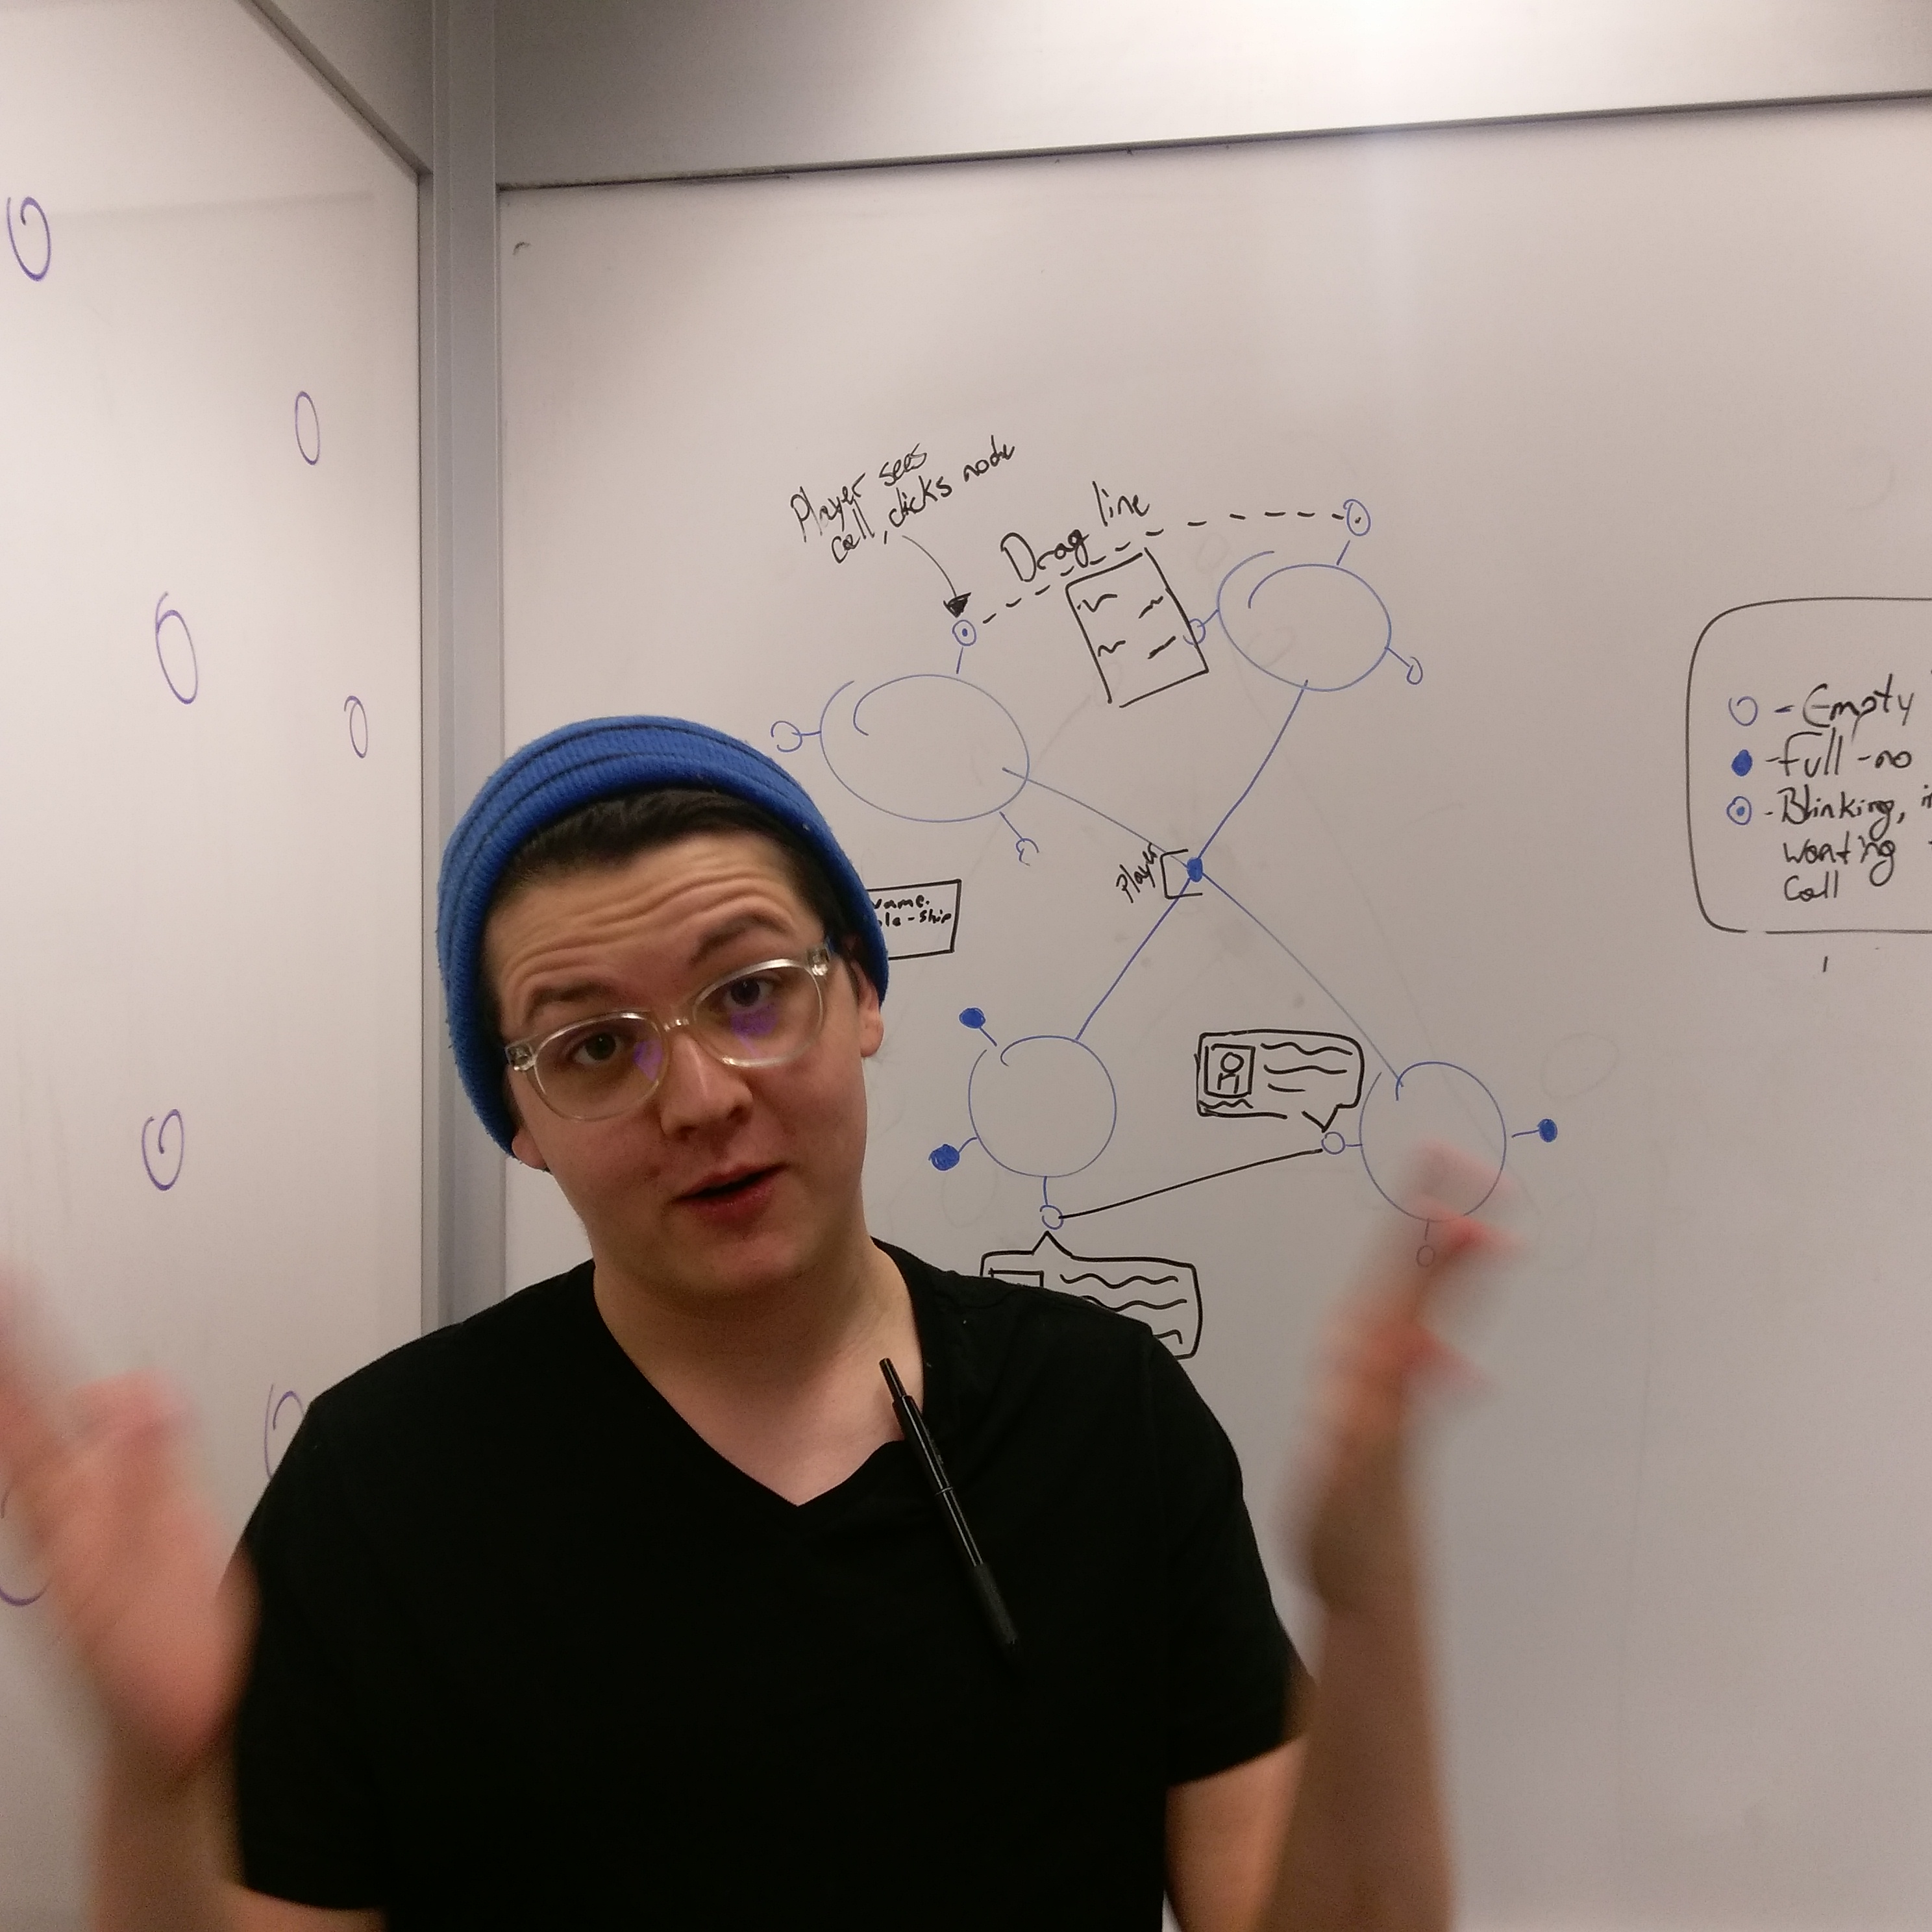 Player sees
call, clicks node
Drag line
Player
name.
le-ship
- Empty
- Full - no
- Blinking,
wanting
Call